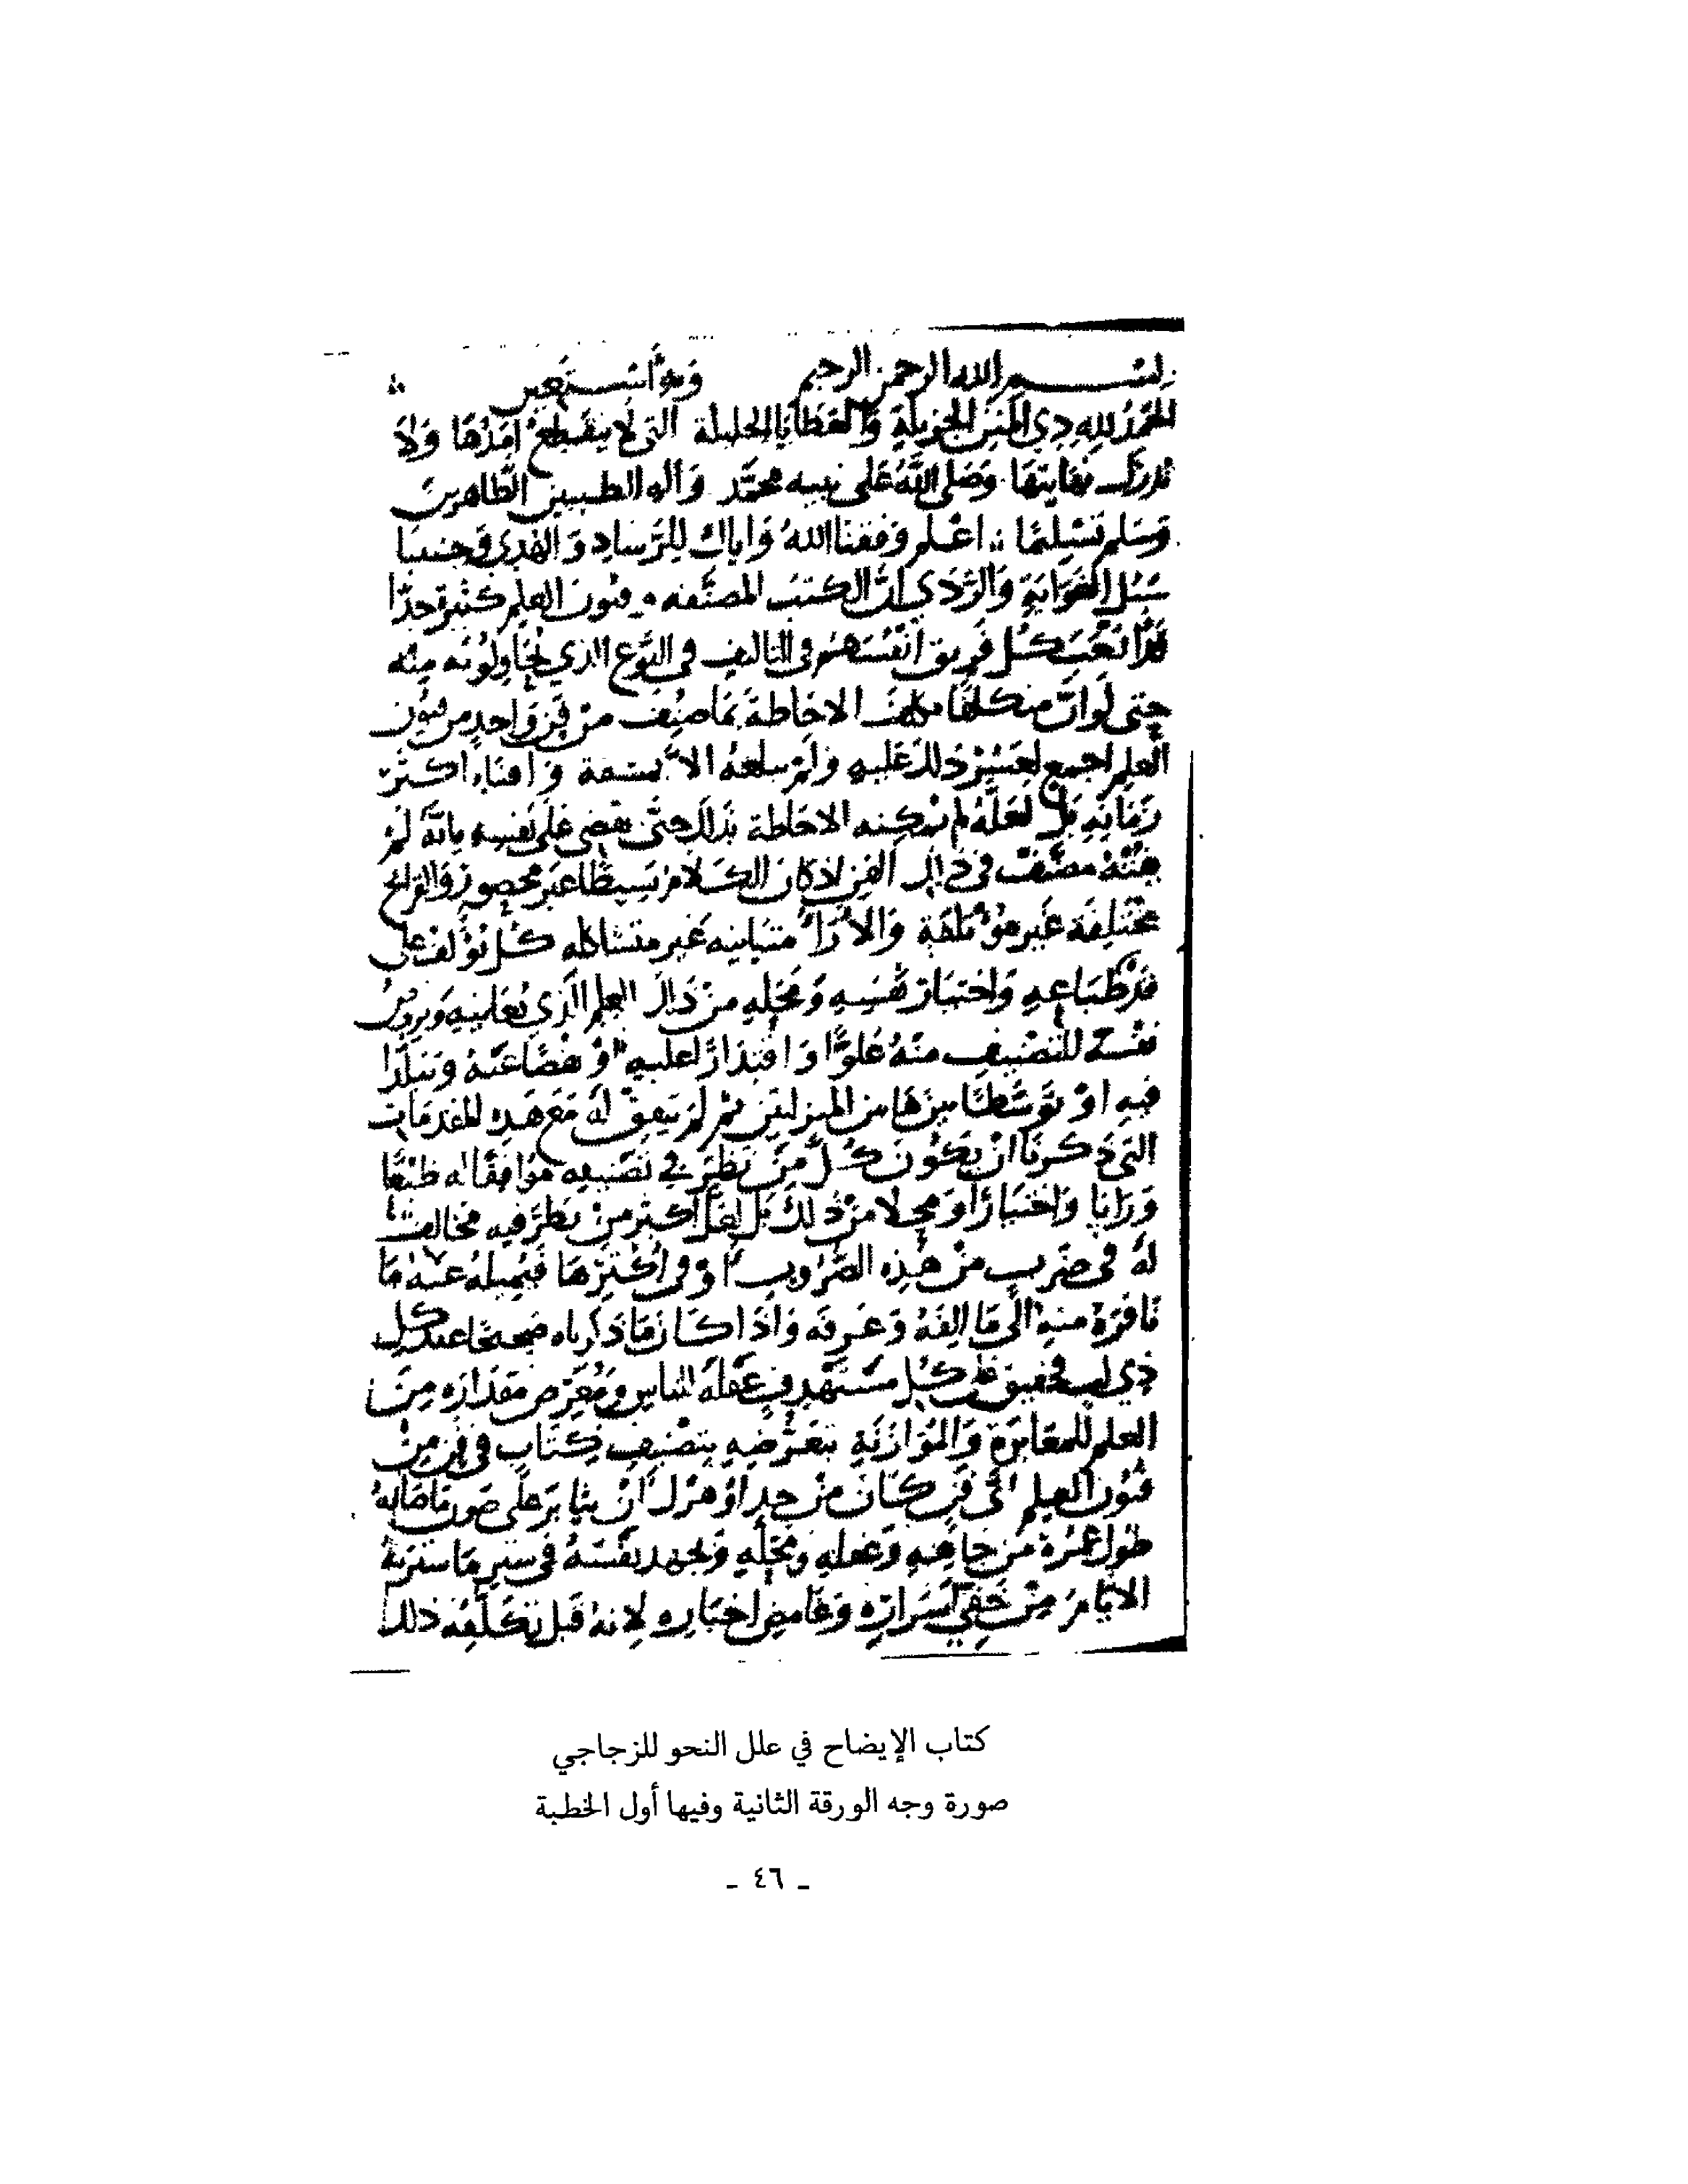 بسم الله الرحمن الرحيم وبه أستعين
الحمد لله ذي المنن الجزيلة والعطايا الجليلة التي لا ينقطع امدها ولا
تدرك نهايتها وصلى الله على نبيه محمد وآله الطيبين الطاهرين
وسلم تسليما اعلم وفقنا الله واياك للرشاد والهدى وجنبنا
سبل الغواية والردى ان الكتب المصنفه في فنون العلم كثيرة جدا
قد اتعب كل فريق انفسهم في التاليف في النوع الذي يحاولونه منه
حتى لو ان متكلفا الاحاطة بما صنف من فن واحد من فنون
العلم اجمع لعسر ذلك عليه ولم يبلغه الا بمشقة وافناء اكثر
زمانه بل لعله لم يمكنه الاحاطة بذلك حتى يقضي على نفسه بانه لم
يفته مصنف في ذلك الفن اذ كان الكلام بسيطا غير محصور والقرائح
مختلفة غير مؤتلفة والاراء متباينه غير متشاكله كل يؤلف على
قدر طباعه واختيار نفسه ومحله من ذلك العلم الذي يعانيه ويروض
نفسه للتصنيف منه علوا واقتدارا عليه او نقصا عنه وتبلدا
فيه او توسطا بين هاتين المنزلتين ثم لم يتفق له مع هذه المقدمات
التي ذكرنا ان يكون كل من نظر في تصنيفه موافقا له طبعا
ورايا واختيارا ومحلا من ذلك بل لعل اكثر من نظر فيه مخالف
له في ضرب من هذه الضروب او في اكثرها فيميله عنه ما
نافره منه الى ما الفه وعرفه واذا كان ما ذكرناه صحيحا عند كل
ذي لب فحقيق على كل مستهدف عقله للناس ومعرض مقداره من
العلم للمعايرة والموازنة بتعرضه بتصنيف كتاب في فن من
فنون العلم اي فن كان من جد او هزل ان يثابر على صون ما صانه
طول عمره من جاهه وعقله ومحله ويجهد نفسه في ستر ما سترته
الايام من خفي اسراره وغامض اخباره لانه قبل تكلفه ذلك
كتاب الإيضاح في علل النحو للزجاجي
صورة وجه الورقة الثانية وفيها أول الخطبة
ـ ٤٦ ـ